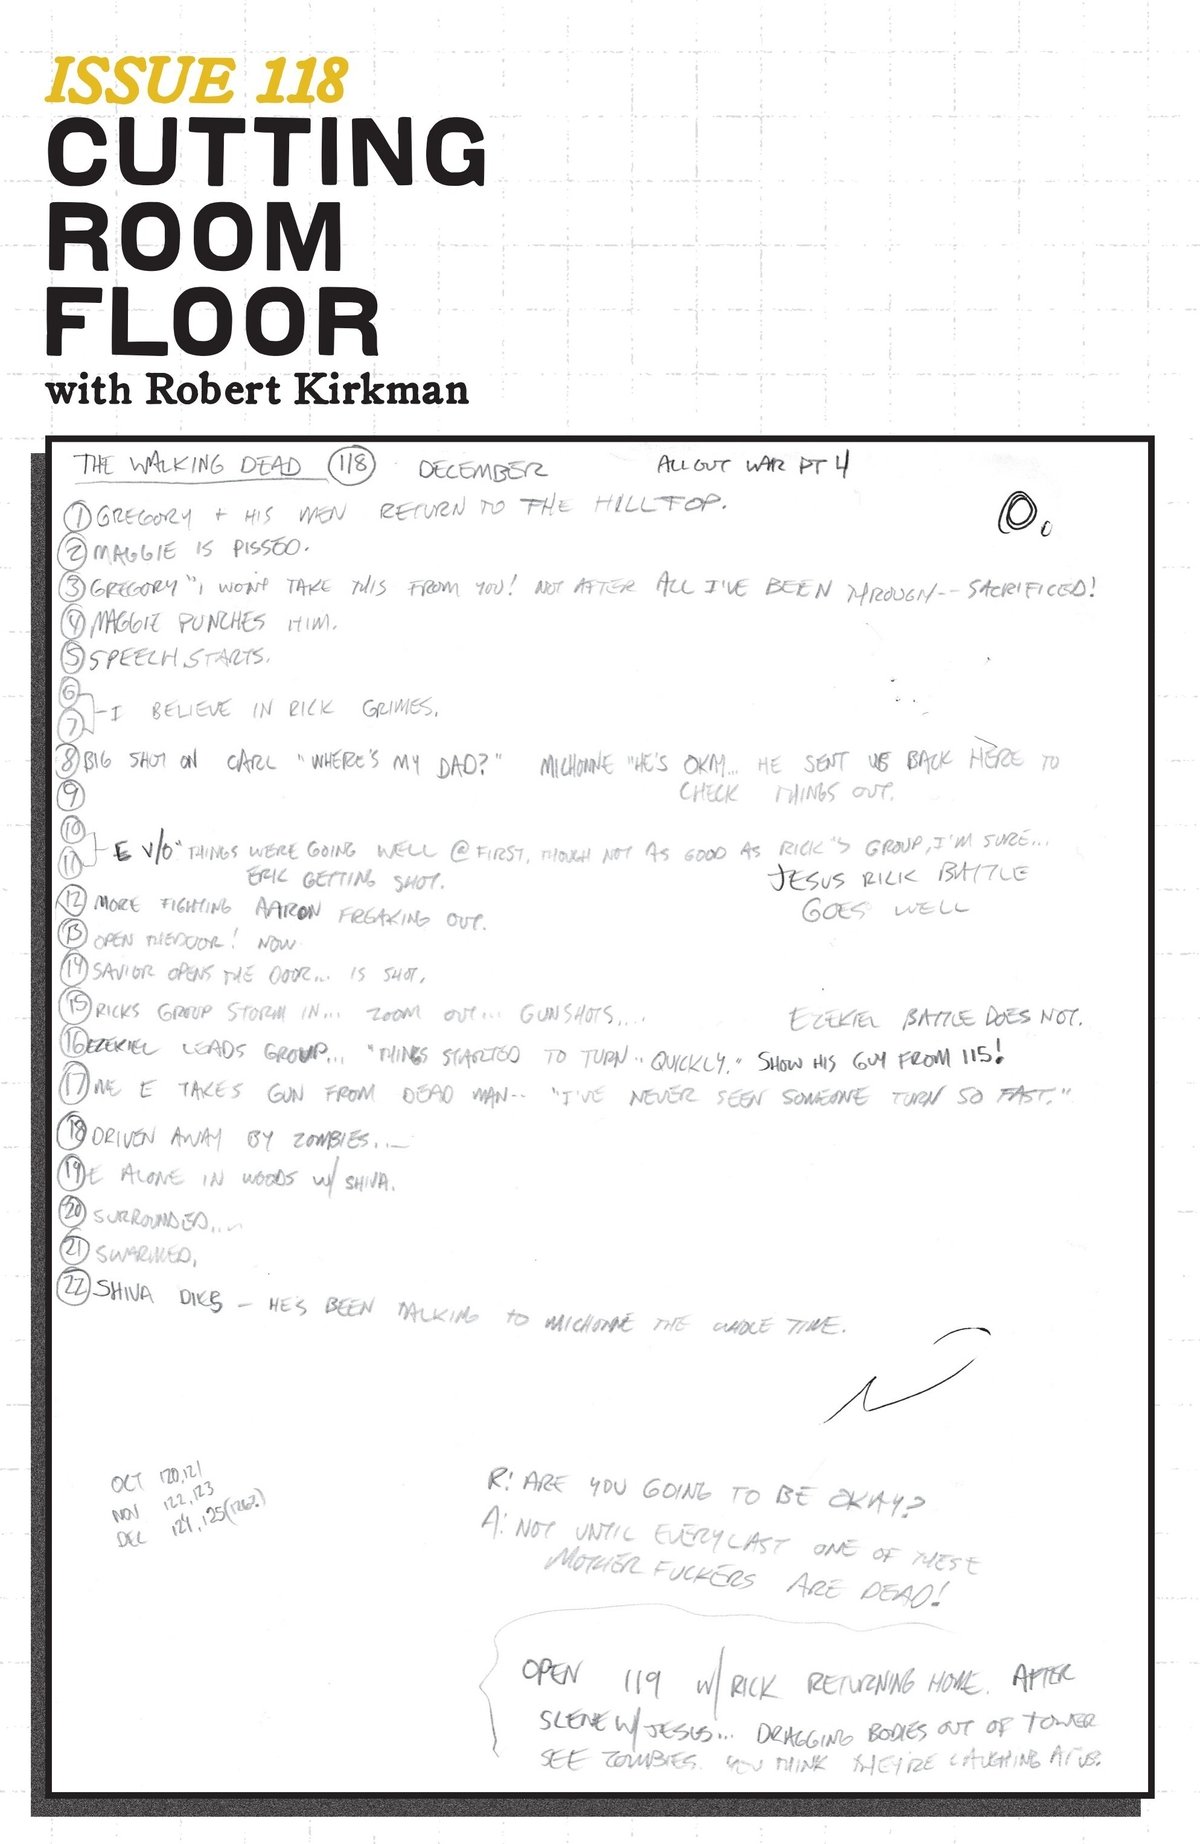 ISSUE 118
CUTTING
ROOM
FLOOR
with Robert Kirkman
THE WALKING DEAD 118 DECEMBER ALL OUT WAR PT 4
1 GREGORY + HIS MEN RETURN TO THE HILLTOP.
2 MAGGIE IS PISSED.
3 GREGORY "I WON'T TAKE THIS FROM YOU! NOT AFTER ALL I'VE BEEN THROUGH-- SACRIFICED!
4 MAGGIE PUNCHES HIM.
5 SPEECH STARTS.
6
7 - I BELIEVE IN RICK GRIMES.
8 BIG SHOT ON CARL "WHERE'S MY DAD?" MICHONNE "HE'S OKAY... HE SENT US BACK HERE TO
CHECK THINGS OUT.
9
10
11 E V/O "THINGS WERE GOING WELL @ FIRST, THOUGH NOT AS GOOD AS RICK'S GROUP, I'M SURE...
ERIC GETTING SHOT.
JESUS RICK BATTLE
GOES WELL
12 MORE FIGHTING AARON FREAKING OUT.
13 OPEN THE DOOR! NOW
14 SAVIOR OPENS THE DOOR... IS SHOT.
15 RICKS GROUP STORM IN... ZOOM OUT... GUNSHOTS....
EZEKIEL BATTLE DOES NOT.
16 EZEKIEL LEADS GROUP... "THINGS STARTED TO TURN.. QUICKLY." SHOW HIS GUY FROM 115!
17 E TAKES GUN FROM DEAD MAN-- "I'VE NEVER SEEN SOMEONE TURN SO FAST."
18 DRIVEN AWAY BY ZOMBIES...
19 E ALONE IN WOODS W/ SHIVA.
20 SURROUNDED...
21 SWARMED.
22 SHIVA DIES - HE'S BEEN TALKING TO MICHONNE THE WHOLE TIME.
OCT 120,121
NOV 122,123
DEC 124,125 (126?)
R: ARE YOU GOING TO BE OKAY?
A: NOT UNTIL EVERY LAST ONE OF THESE
MOTHER FUCKERS ARE DEAD!
OPEN 119 W/ RICK RETURNING HOME. AFTER
SCENE W/ JESUS... DRAGGING BODIES OUT OF TOWER
SEE ZOMBIES. YOU THINK THEY'RE LAUGHING AT US.